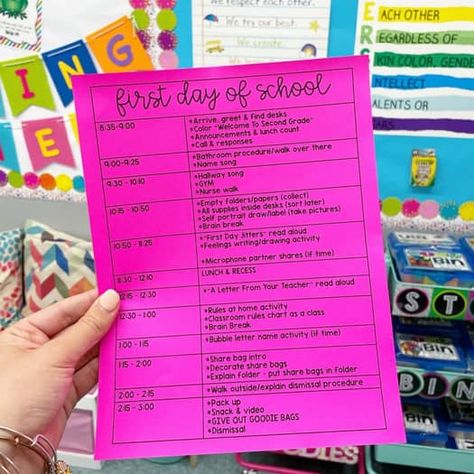 We try our best.
We create.
EACH OTHER
REGARDLESS OF
SKIN COLOR, GENDER
INTELLECT
TALENTS OR
ING
first day of school
8:35-9:00
*Arrive, greet & find desks
*Color "Welcome To Second Grade"
*Announcements & lunch count
*Call & responses
9:00-9:25
*Bathroom procedure/walk over there
*Name song
9:30 - 10:10
*Hallway song
*GYM
*Nurse walk
10:15 - 10:50
*Empty folders/papers (collect)
*All supplies inside desks (sort later)
*Self portrait draw/label (take pictures)
*Brain break
10:50 - 11:25
*"First Day Jitters" read aloud
*Feelings writing/drawing activity
*Microphone partner shares (if time)
11:30 - 12:10
LUNCH & RECESS
12:15 - 12:30
*"A Letter From Your Teacher" read aloud
12:30 - 1:00
*Rules at home activity
*Classroom rules chart as a class
*Brain Break
1:00 - 1:15
*Bubble letter name activity (if time)
1:15 - 2:00
*Share bag intro
*Decorate share bags
*Explain folder - put share bags in folder
2:00 - 2:15
*Walk outside/explain dismissal procedure
2:15 - 3:00
*Pack up
*Snack & video
*GIVE OUT GOODIE BAGS
*Dismissal
Bin
ST
Bin
BIN